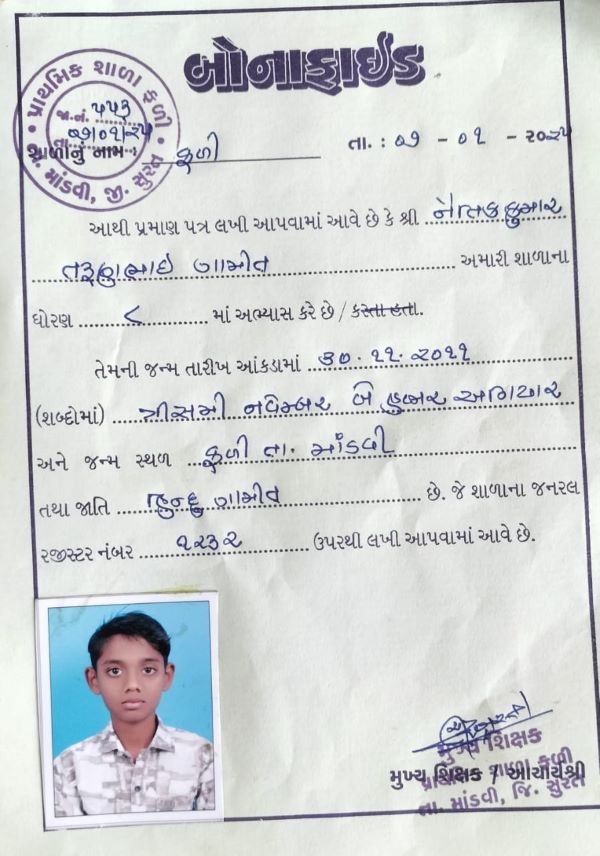 બોનાફાઈડ
પ્રાથમિક શાળા ફળી
જા.નં. ૫૫૩
તા. ૭/૦૧/૨૫
તા. માંડવી, જી. સુરત
શાળાનું નામ : ફળી તા. : ૦૭ - ૦૧ - ૨૦૨૫
આથી પ્રમાણ પત્ર લખી આપવામાં આવે છે કે શ્રી નૈતિકકુમાર
તરૂણભાઇ ગામીત અમારી શાળાના
ધોરણ ૮ માં અભ્યાસ કરે છે / કરતા હતા.
તેમની જન્મ તારીખ આંકડામાં ૩૦.૧૧.૨૦૧૧
(શબ્દોમાં) ત્રીસમી નવેમ્બર બે હજાર અગિયાર
અને જન્મ સ્થળ ફળી તા. માંડવી
તથા જાતિ હિન્દુ ગામીત છે. જે શાળાના જનરલ
રજીસ્ટર નંબર ૧૨૩૨ ઉપરથી લખી આપવામાં આવે છે.
મુખ્ય શિક્ષક
મુખ્ય શિક્ષક / આચાર્યશ્રી
પ્રાથમિક શાળા ફળી
તા. માંડવી, જિ. સુરત